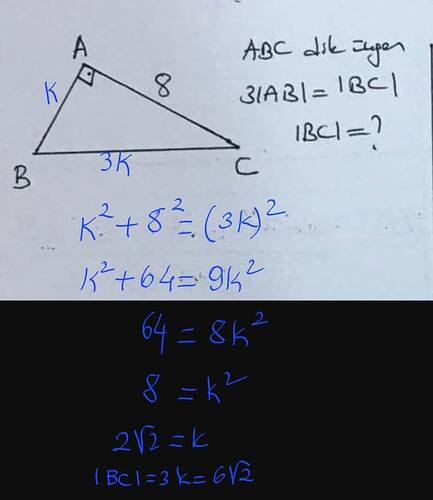 A
K
8
B
3K
C
ABC dik üçgen
3|AB| = |BC|
|BC| = ?
K² + 8² = (3K)²
K² + 64 = 9K²
64 = 8K²
8 = K²
2√2 = K
|BC| = 3K = 6√2